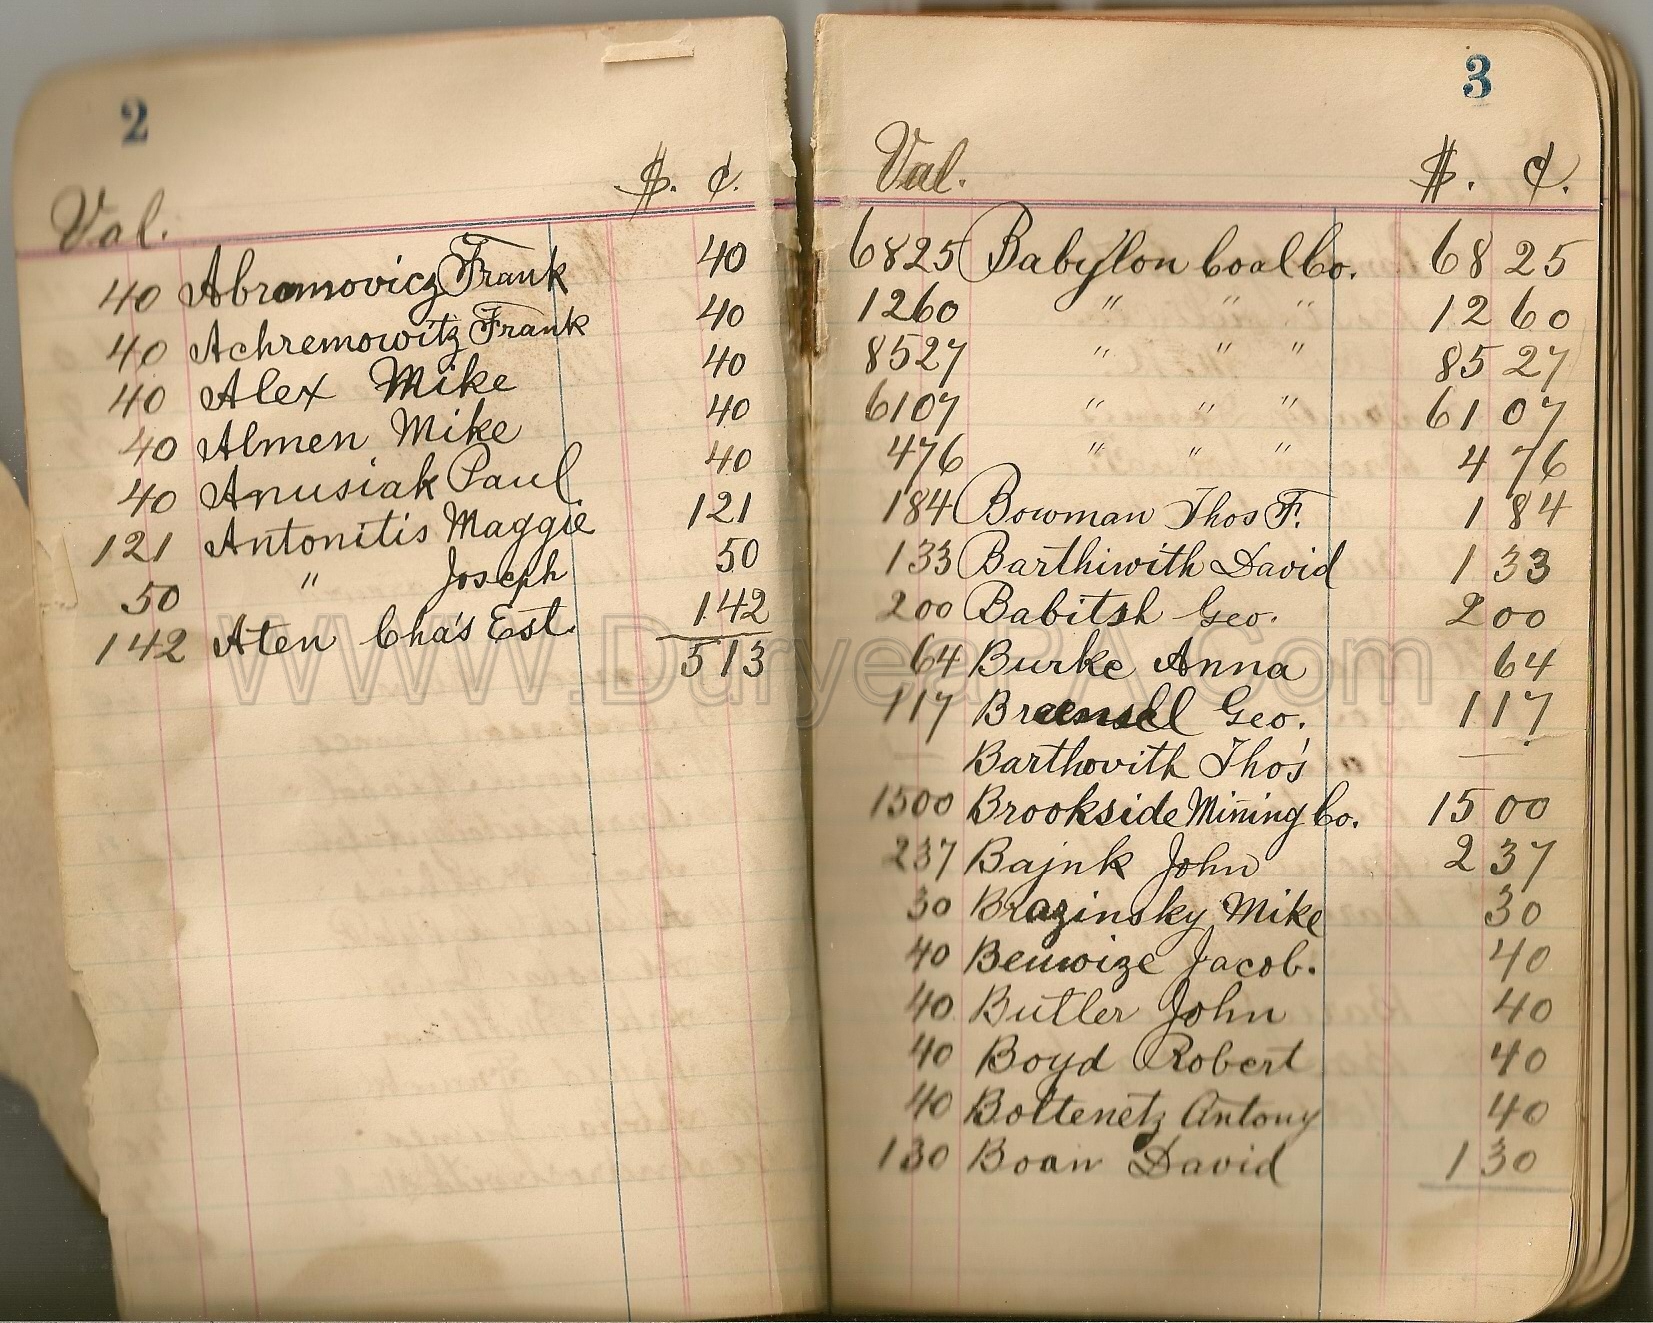 2
Val. $. ¢.
40 Abramovicz Frank 40
40 Achremowitz Frank 40
40 Alex Mike 40
40 Almen Mike 40
40 Anusiak Paul 40
121 Antonitis Maggie 121
50 " Joseph 50
142 Aten Cha's Est. 142
513
3
Val. $. ¢.
6825 Babylon Coal Co. 68 25
1260 " " " 12 60
8527 " " " 85 27
6107 " " " 61 07
476 " " " 4 76
184 Bowman Thos F. 1 84
133 Barthiwith David 1 33
200 Babitsh Geo. 2 00
64 Burke Anna 64
117 Geo. 1 17
— Barthovith Tho's —
1500 Brookside Mining Co. 15 00
237 Bajnk John 2 37
30 Brazinsky Mike 30
40 Benwize Jacob. 40
40 Butler John 40
40 Boyd Robert 40
40 Boltenetz Antony 40
130 Boan David 1 30
WWW.DuryeaPA.Com